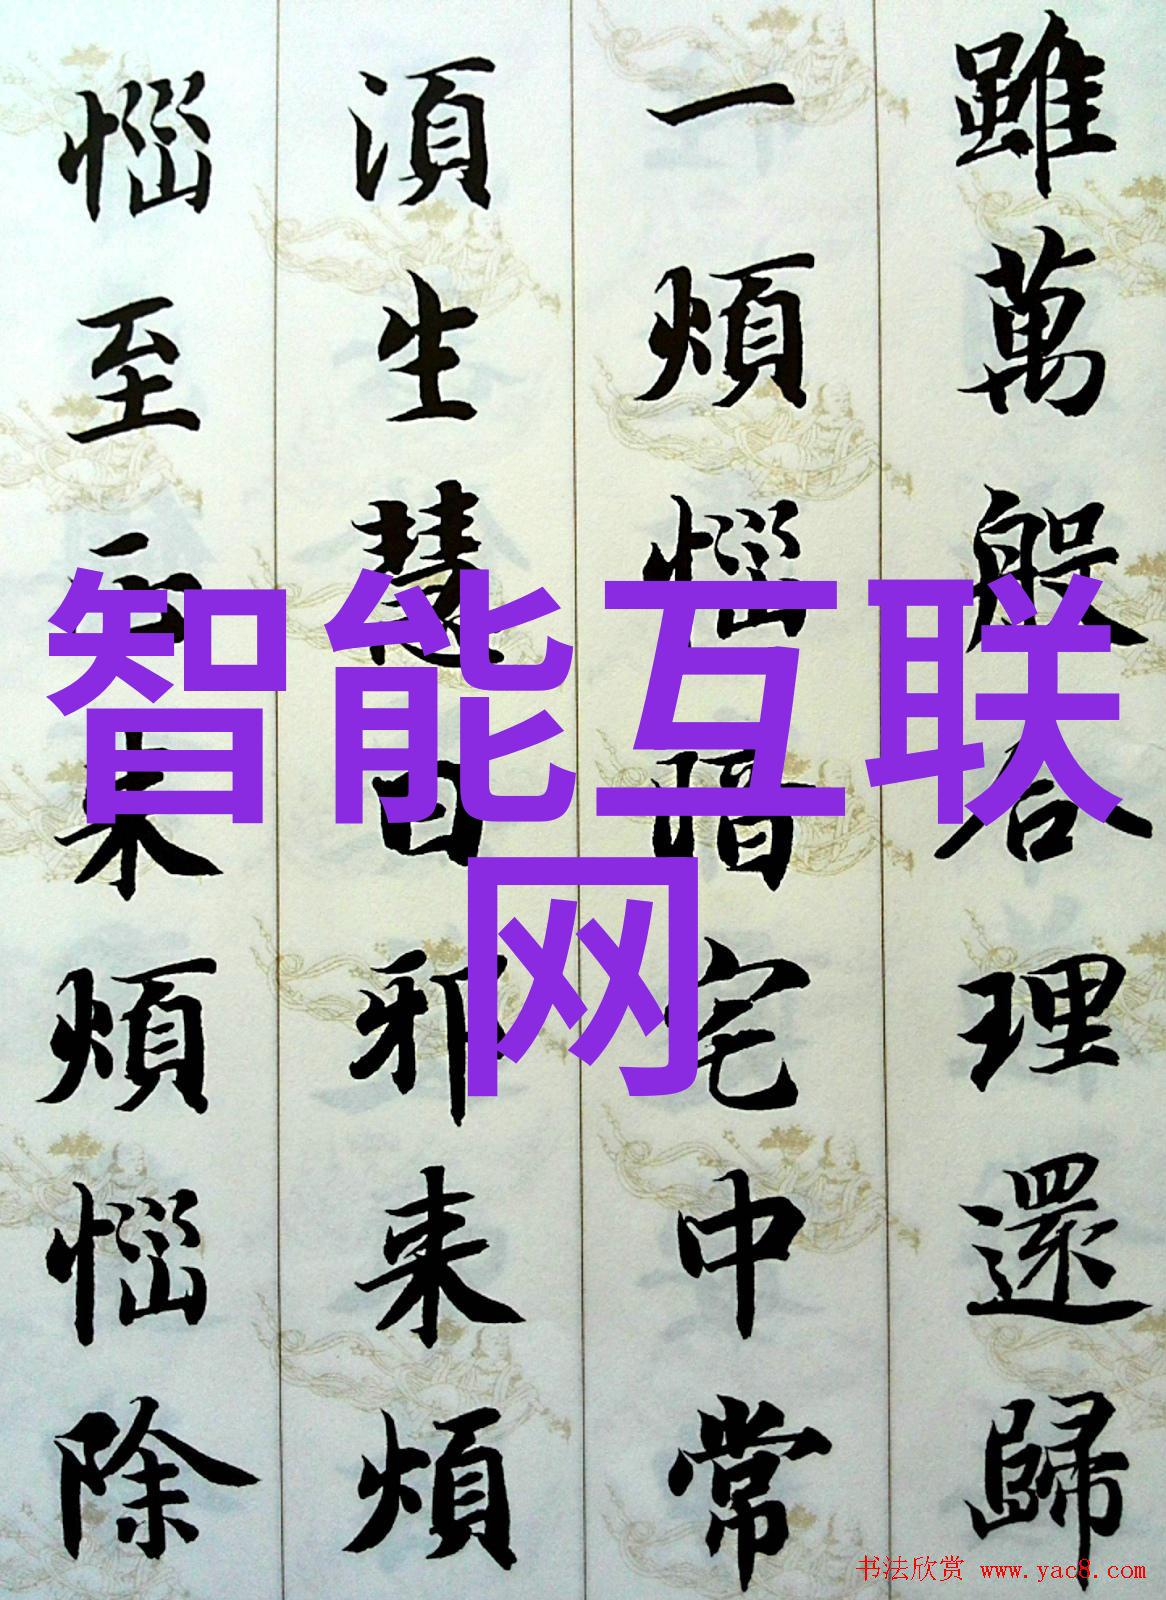 雖萬般合理還歸
一煩惱暗宅中常
湏生慧日邪来煩
惱至正来煩惱除
智能互联
网
书法欣赏 www.yac8.com